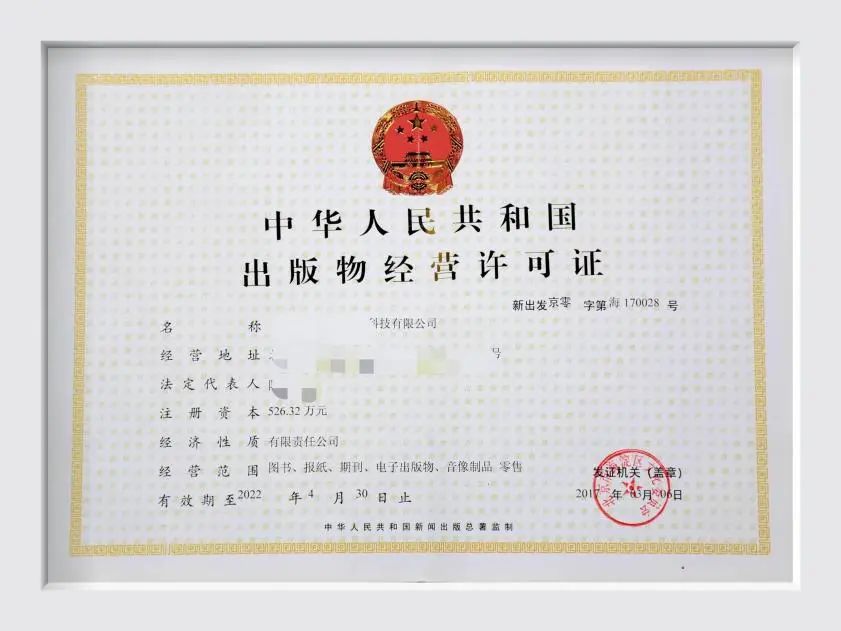 中华人民共和国
出版物经营许可证
新出发京零 字第海 170028 号
名称 科技有限公司
经营地址 号
法定代表人
注册资本 526.32 万元
经济性质 有限责任公司
经营范围 图书、报纸、期刊、电子出版物、音像制品 零售
发证机关（盖章）
有效期至2022 年 4 月 30 日止
2017 年 03月 06日
中华人民共和国新闻出版总署监制